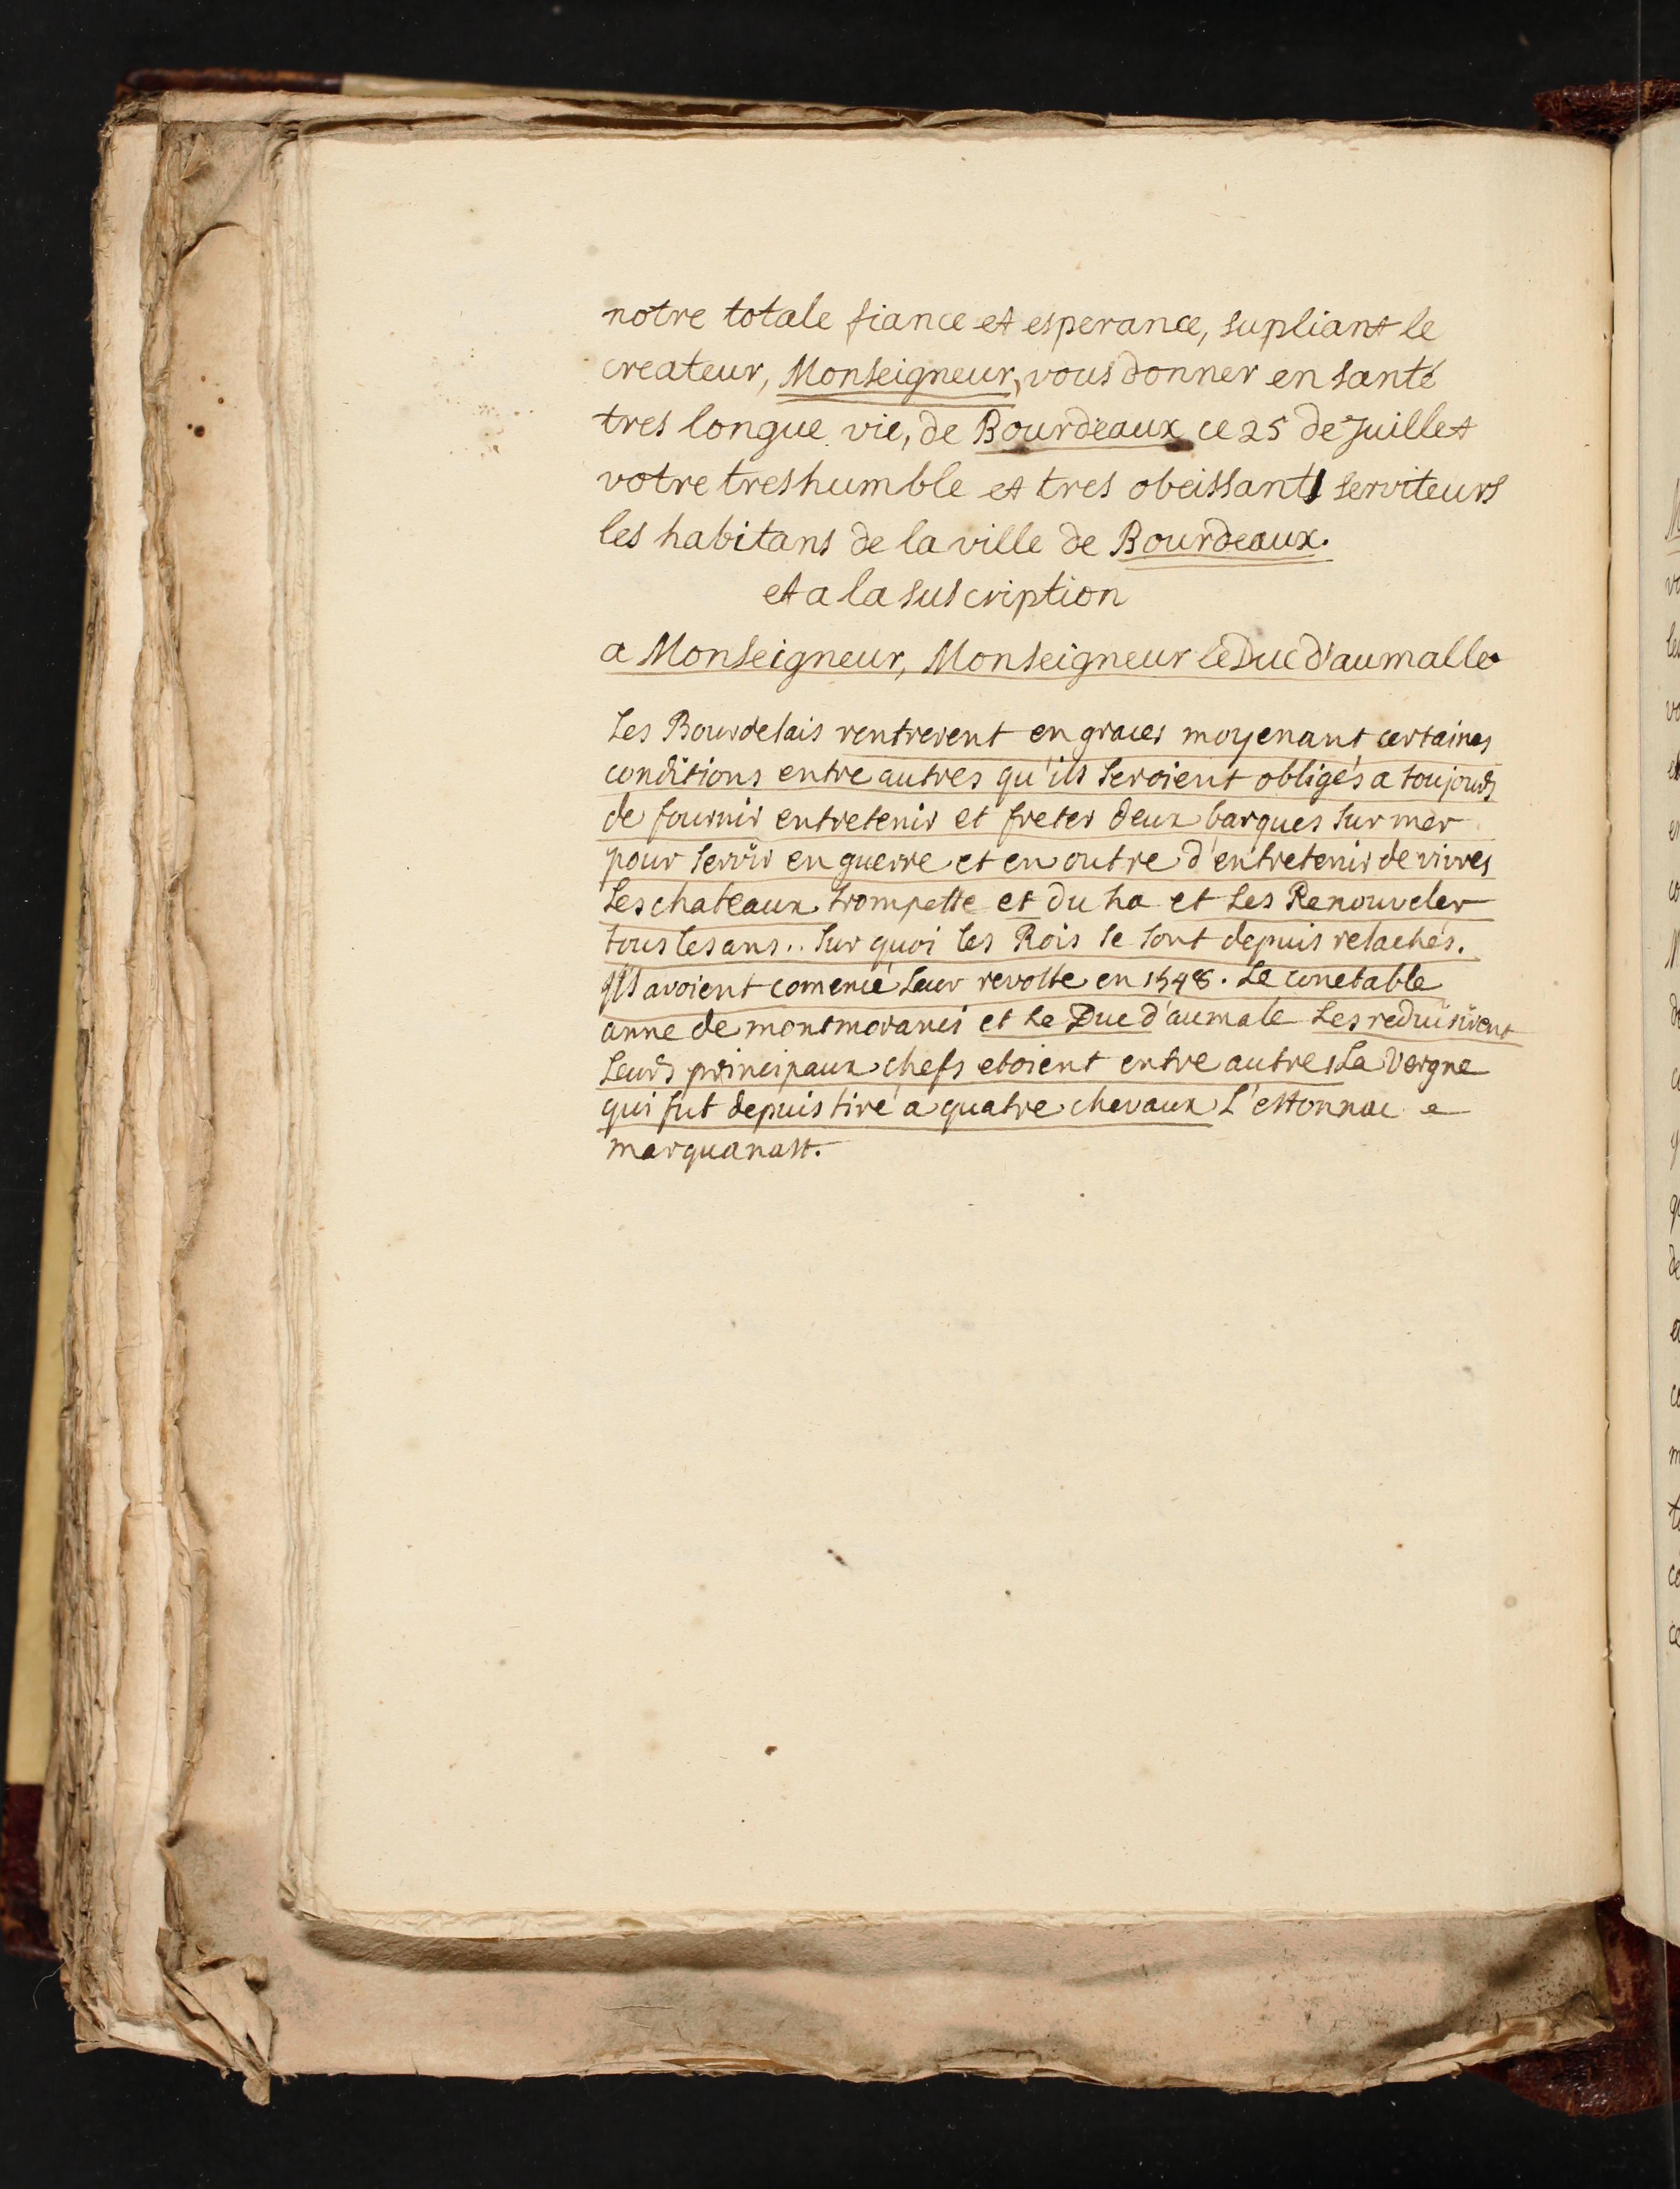 notre totale fiance et esperance, supliant le
createur, Monseigneur, vous donner en santé
tres longue vie, de Bourdeaux ce 25 de Juillet
votre treshumble et tres obeissants serviteurs
les habitans de la ville de Bourdeaux.
et a la suscription
a Monseigneur, Monseigneur le Duc d'aumalle
Les Bourdelais rentrerent en graces moyenant certaines
conditions entre autres qu'ils seroient obligés a toujours
de fournir entretenir et freter deux barques sur mer
pour servir en guerre et en outre d'entretenir de vivres
Les chateaux trompette et du ha et Les Renouveler
tous les ans.. sur quoi les Rois se sont depuis relachés.
ils avoient comencé Leur revolte en 1548. Le conetable
anne de montmoranci et Le Duc d'aumale Les reduisirent
Leurs principaux chefs etoient entre autres La Vergne
qui fut depuis tiré a quatre chevaux L'estonnac e
marquanast.